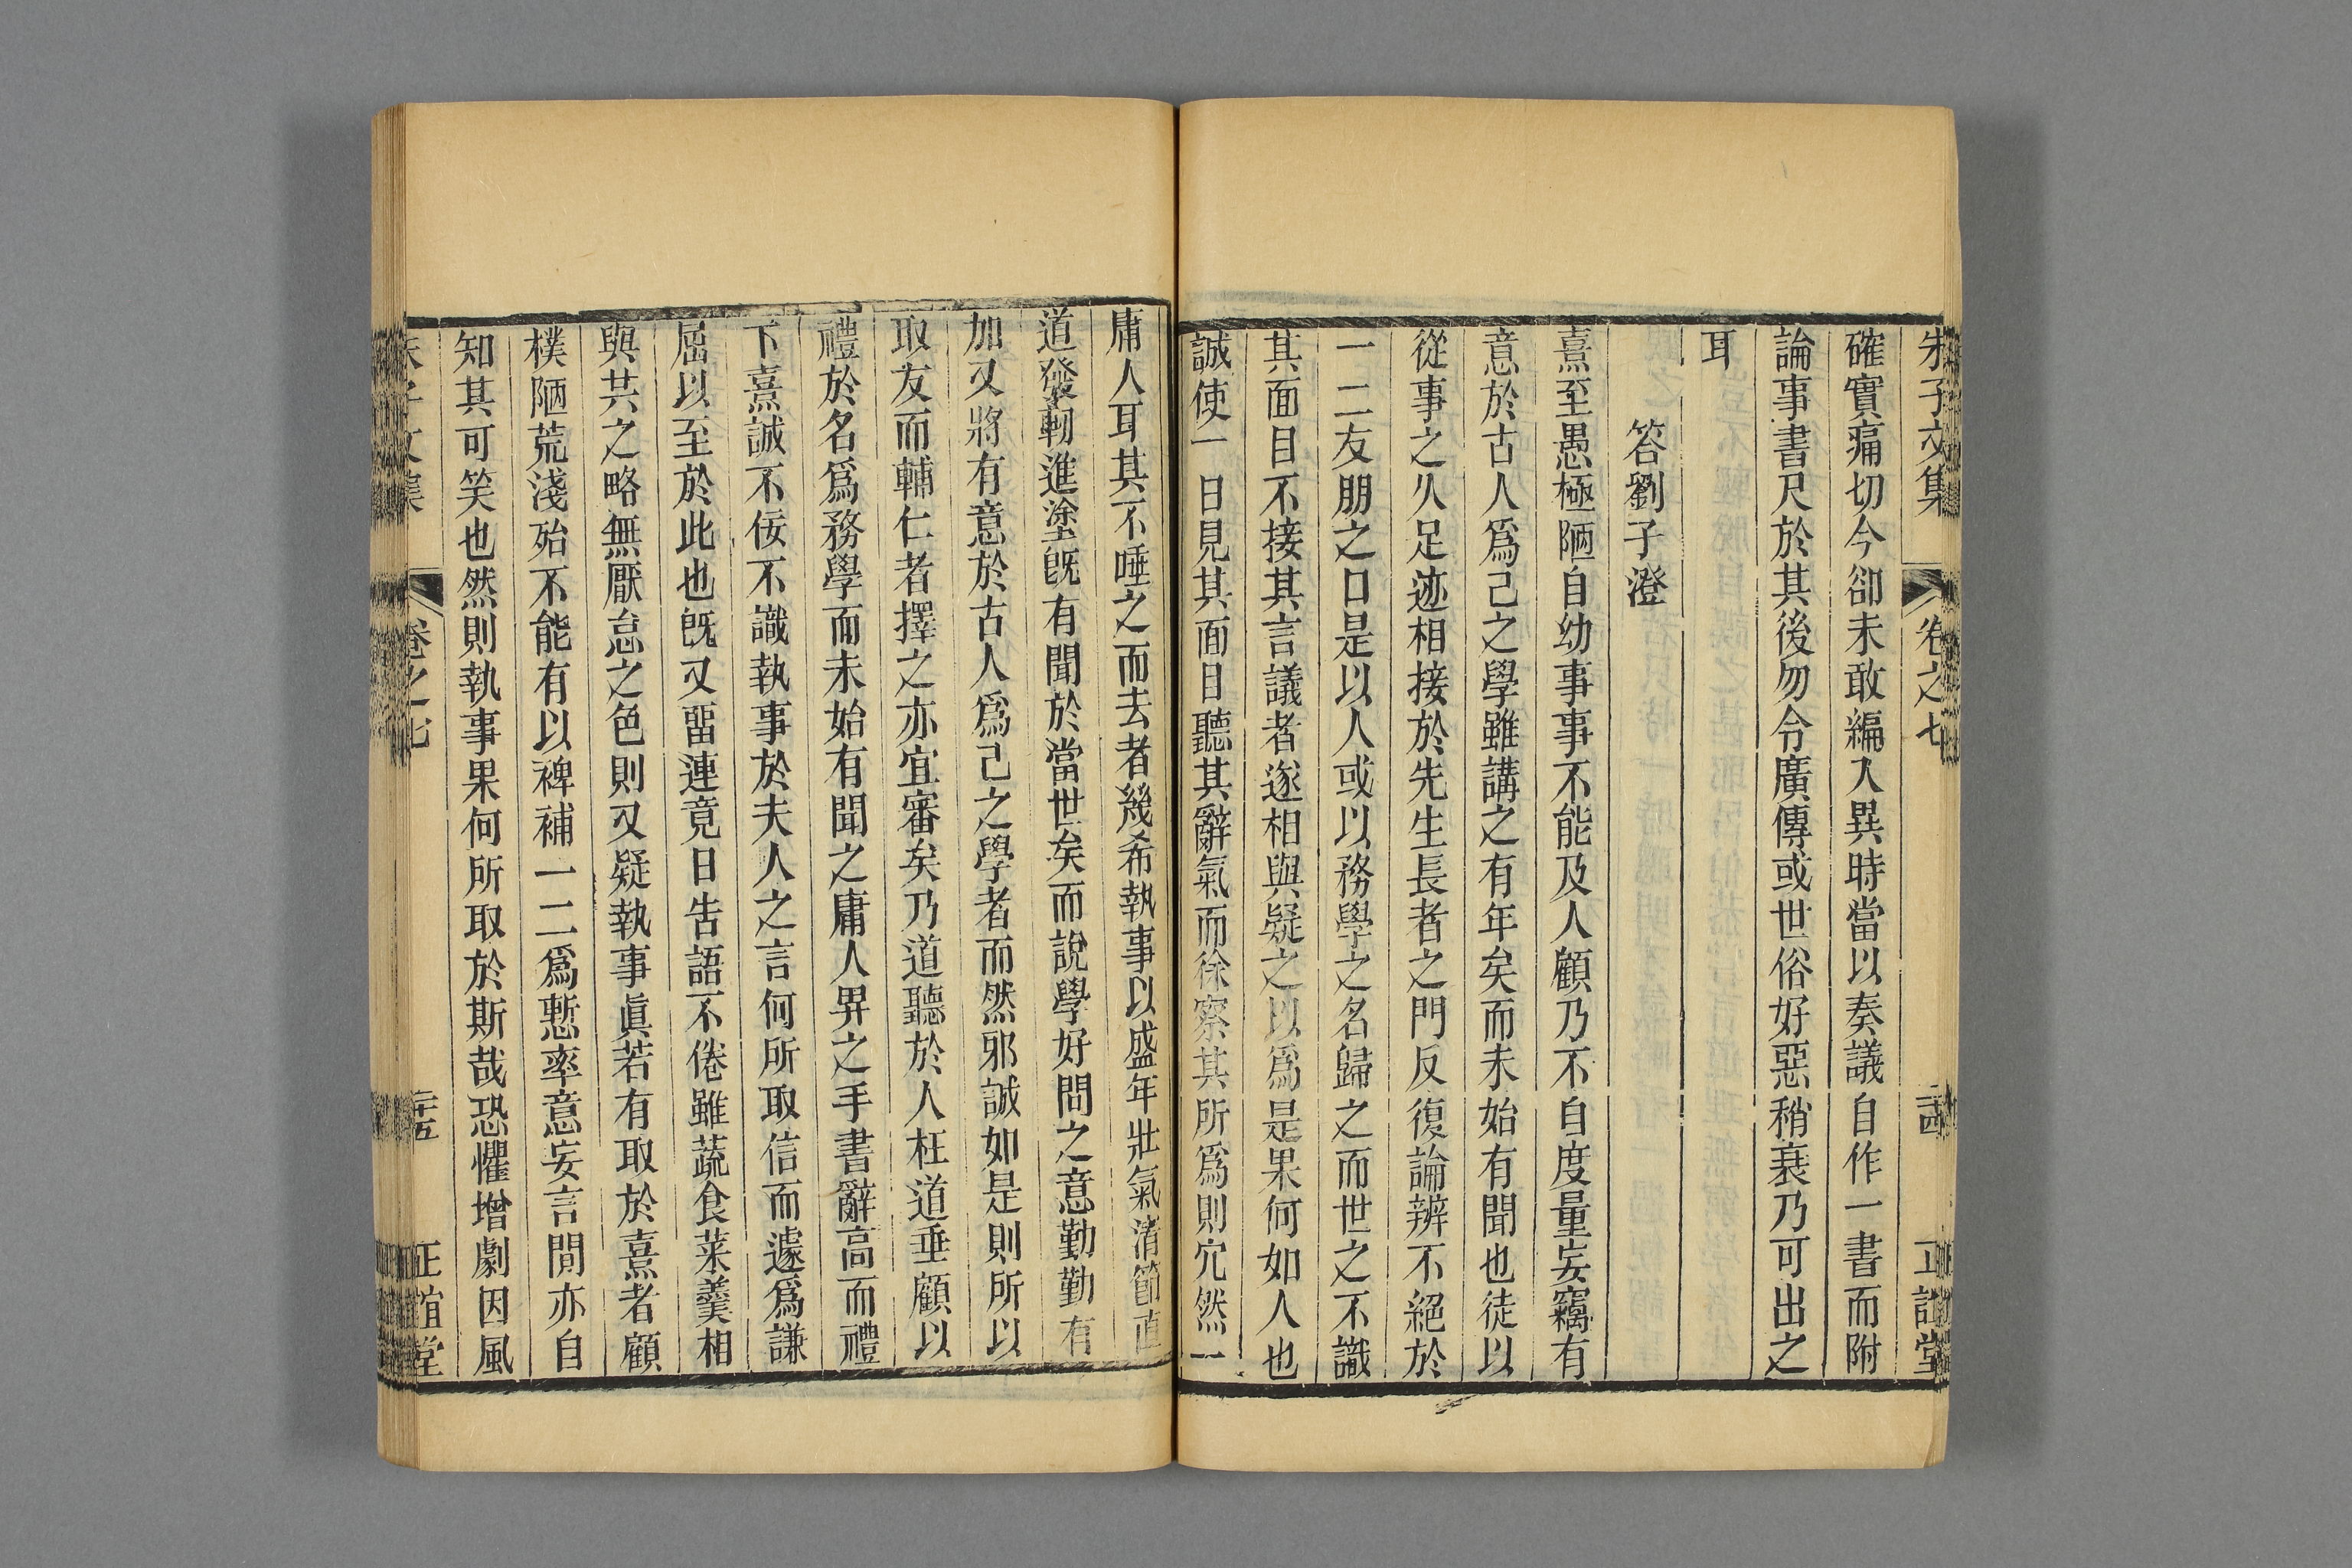 朱子文集 卷之七 二十四 正誼堂
確實痛切今卻未敢編入異時當以奏議自作一書而附
論事書尺於其後勿令廣傳或世俗好惡稍衰乃可出之
耳
答劉子澄
熹至愚極陋自幼事事不能及人顧乃不自度量妄竊有
意於古人爲己之學雖講之有年矣而未始有聞也徒以
從事之久足迹相接於先生長者之門反復論辨不絕於
一二友朋之口是以人或以務學之名歸之而世之不識
其面目不接其言議者遂相與疑之以爲是果何如人也
誠使一日見其面目聽其辭氣而徐察其所爲則宂然一
庸人耳其不唾之而去者幾希執事以盛年壯氣清節直
道發軔進塗旣有聞於當世矣而說學好問之意勤勤有
加又將有意於古人爲己之學者而然邪誠如是則所以
取友而輔仁者擇之亦宜審矣乃道聽於人枉道垂顧以
禮於名爲務學而未始有聞之庸人畀之手書辭高而禮
下熹誠不佞不識執事於夫人之言何所取信而遽爲謙
屈以至於此也旣又畱連竟日告語不倦雖蔬食菜羹相
與共之略無厭怠之色則又疑執事眞若有取於熹者顧
樸陋荒淺殆不能有以裨補一二爲慙率意妄言間亦自
知其可笑也然則執事果何所取於斯哉恐懼增劇因風
朱子文集 卷之七 二十五 正誼堂